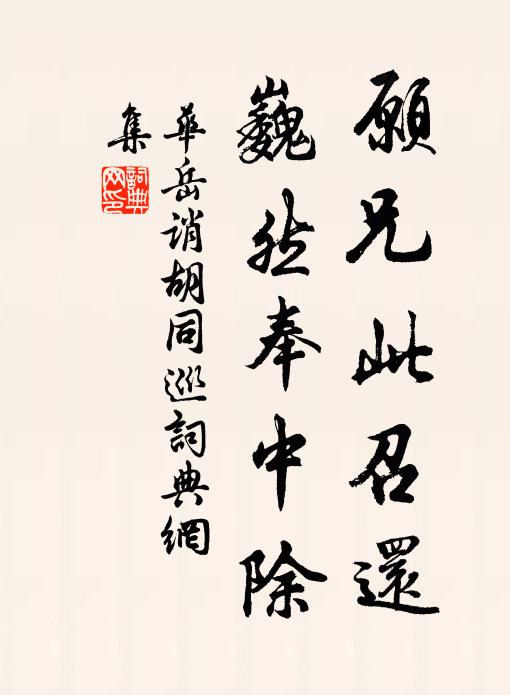 願兄此召還
巍然奉中除
華岳誚胡同巡詞典網
集
詞典
网印